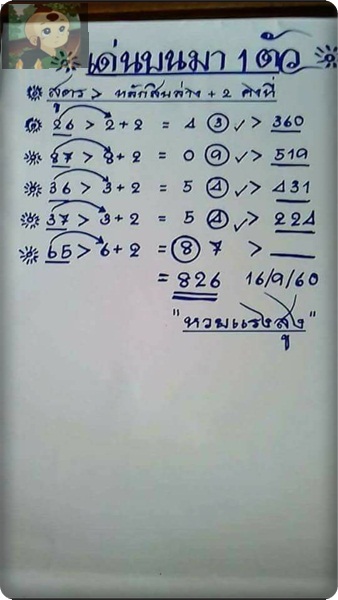 เด่นบนมา 1 ตัว
สูตร > หลักสิบล่าง + 2 คงที่
26 > 2+2 = 4 3 ✓> 360
87 > 8+2 = 0 9 ✓> 519
36 > 3+2 = 5 4 ✓> 431
37 > 3+2 = 5 4 ✓> 224
65 > 6+2 = 8 7 > ___
= 826 16/9/60
"หวยแรงสูง"